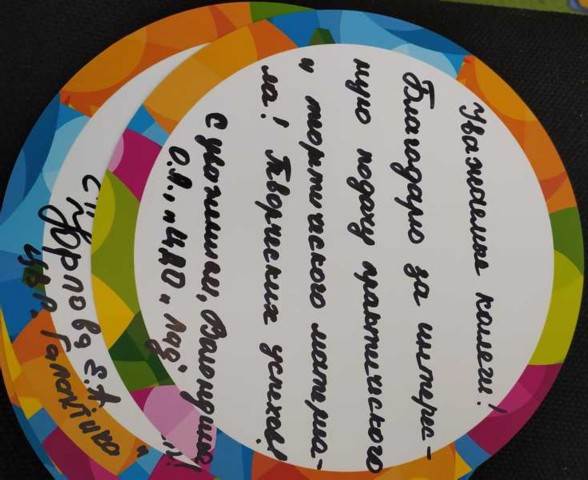 Уважаемые колеги!
Благодарю за интерес-
ную подачу практического
и теоретического материа-
ла! Творческих успехов!
С уважением,
О.В., "ЦДО" Лад
Карпова Е.А
"Галактика"